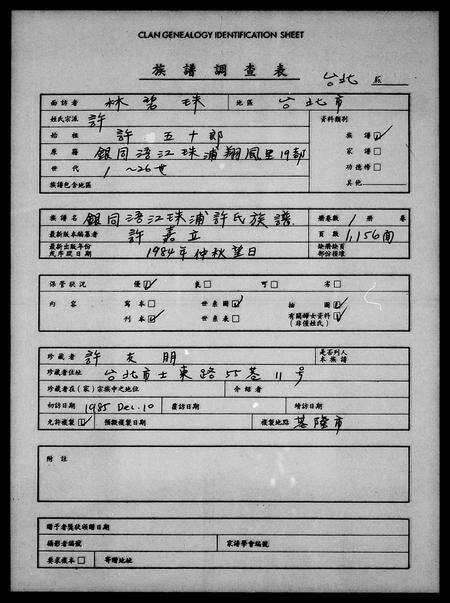 CLAN GENEALOGY IDENTIFICATION SHEET
族譜調查表
台北 區
面訪者 林碧珠 地區 台北市
姓氏宗派 許 資料類別
始祖 許五十郎 族譜☑
原籍 銀同浯江珠浦翔風里19都 家譜□
世代 1~26世 功德榜□
族譜包含地區 其他
族譜名 銀同浯江珠浦許氏族譜 册卷數 1 册 卷
最新版本編纂者 許嘉立 頁數 1,156面
最新出版年份或序跋日期 1984年仲秋望日 缺册缺頁部份種類
保管狀況 優☑ 良□ 可□ 劣□
內容 寫本□ 世系圖☑ 插圖☑
刊本☑ 世系表□ 有關婦女資料(非僅姓氏)☑
珍藏者 許友朋 是否列入本族譜
珍藏者住址 台北市士東路55巷11号
珍藏者在(家)宗族中之地位 介紹者
初訪日期 1985 Dec.10 覆訪日期 續訪日期
允許複製☑ 預擬複製日期 複製地點 基隆市
附註
贈予者獎狀頒贈日期
攝影者編號 家譜學會編號
要求複本□ 寄贈地址